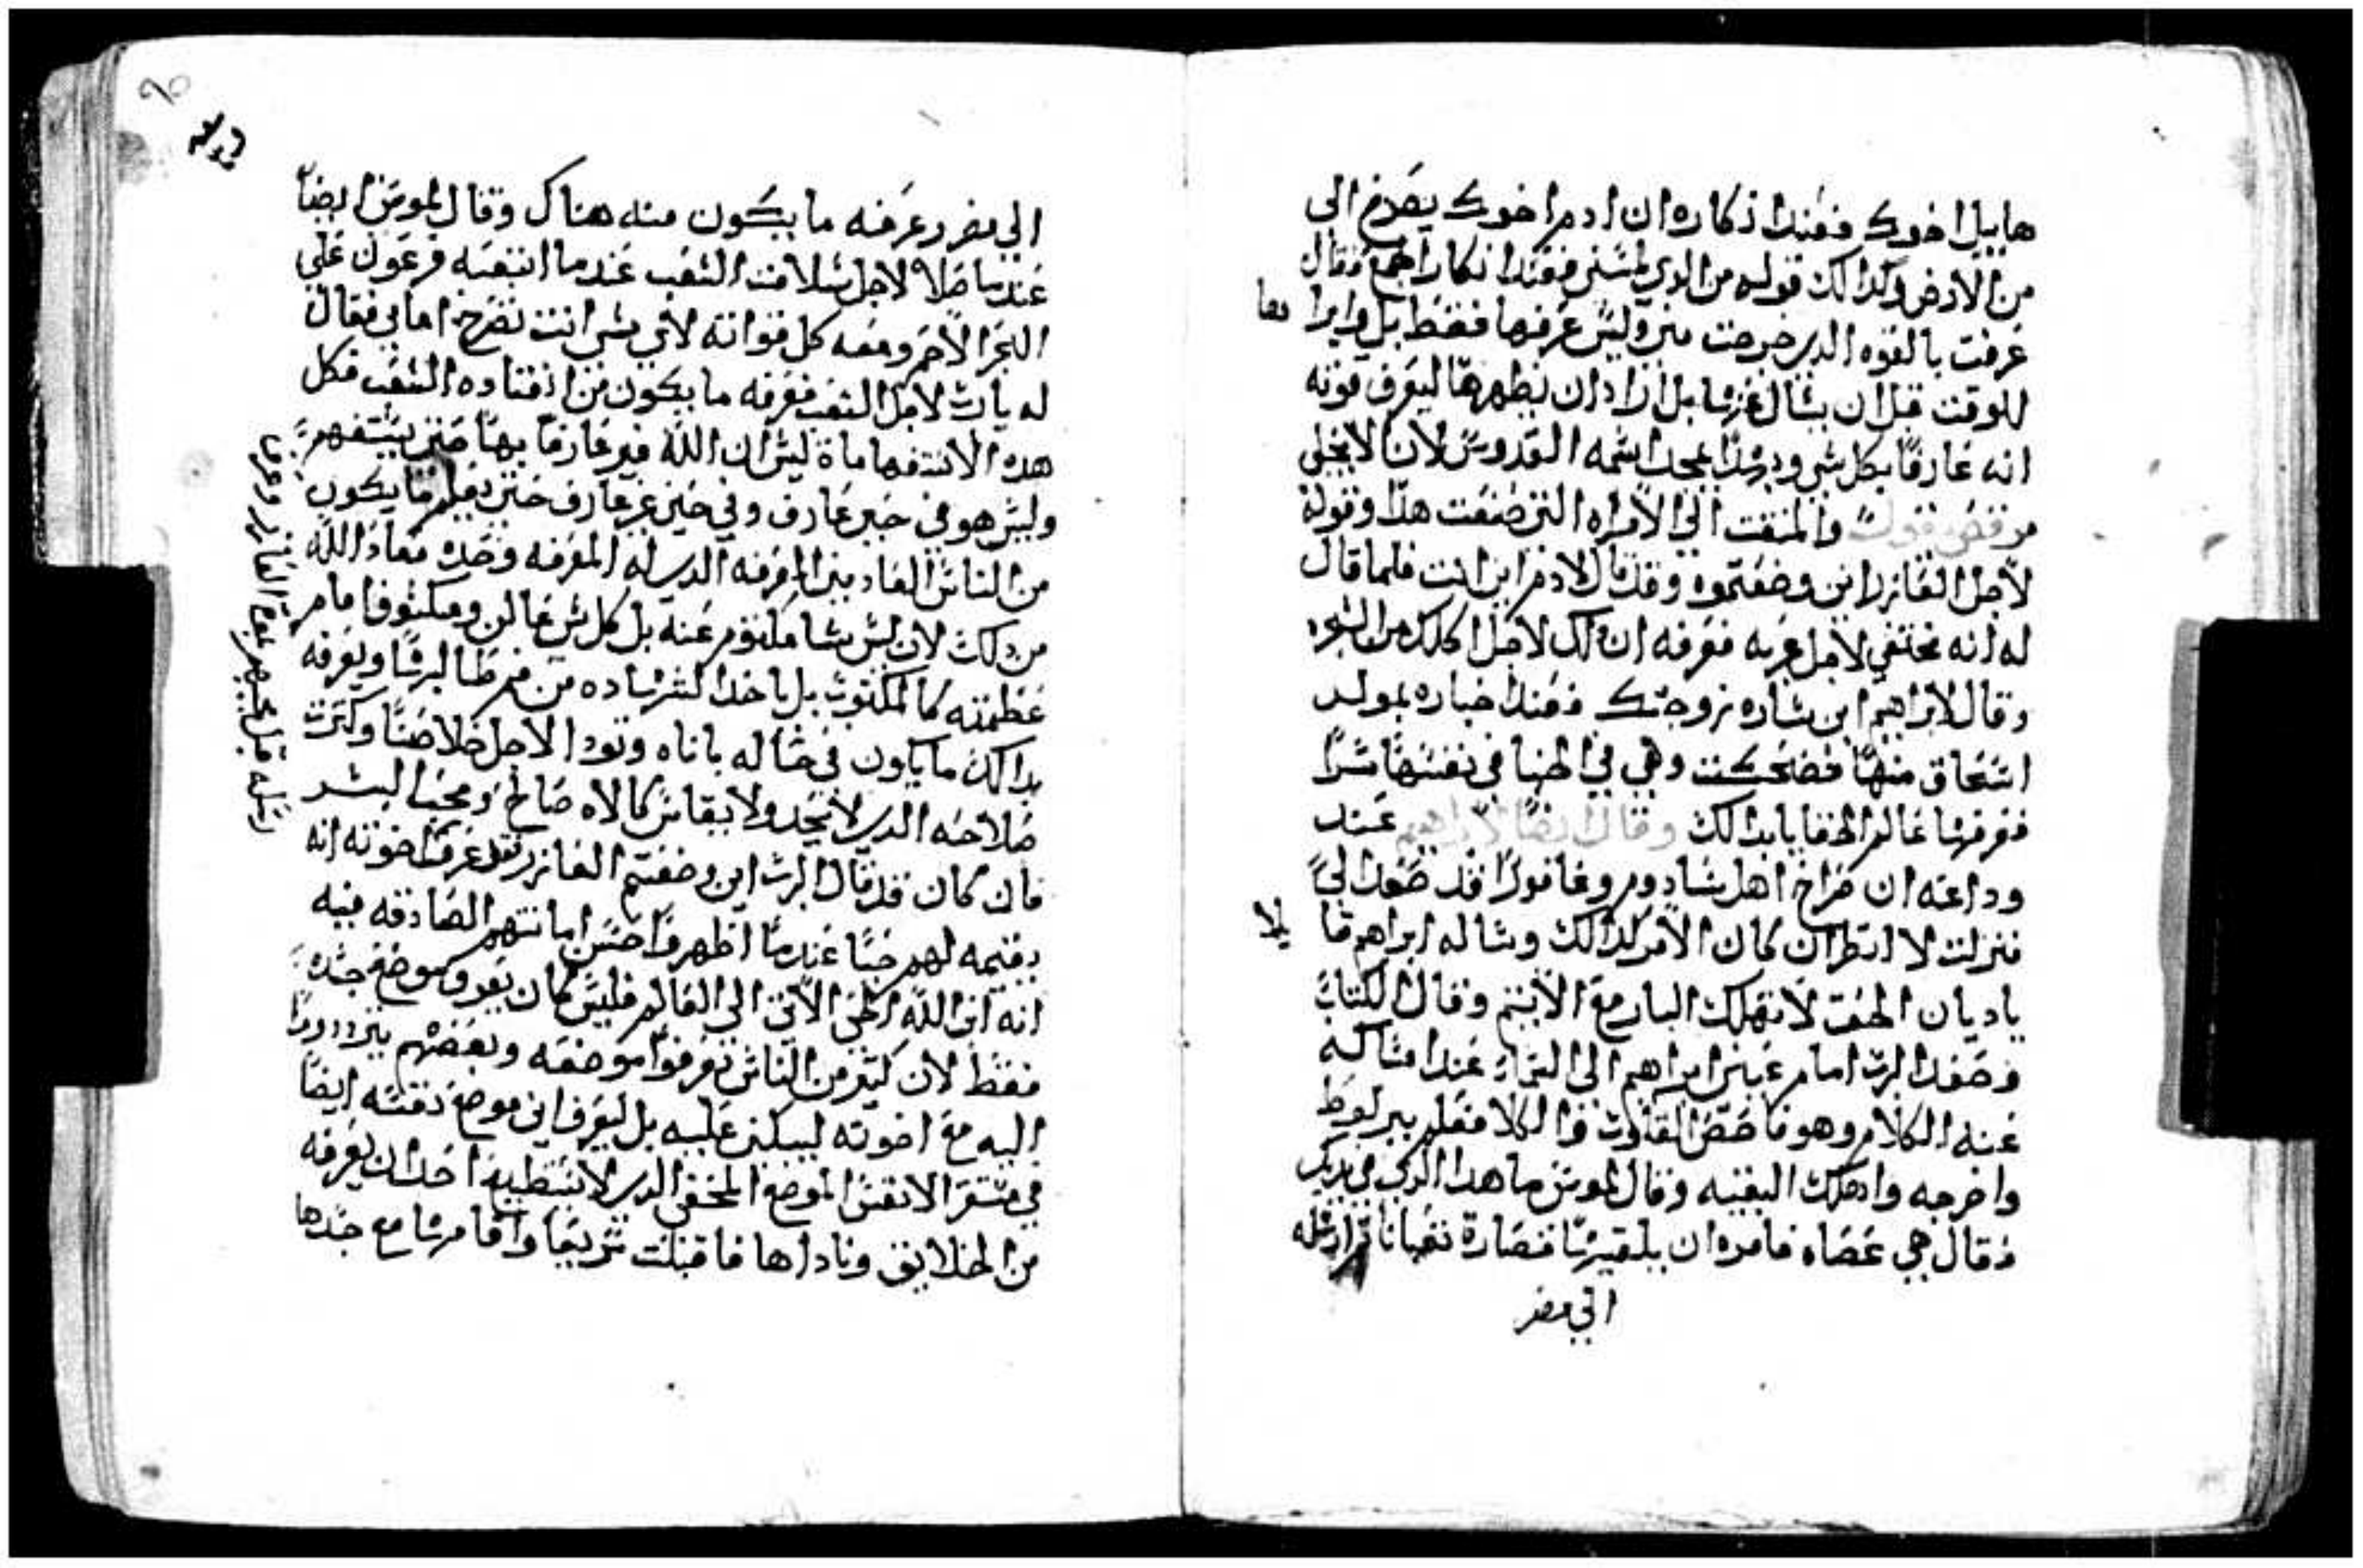 هابيل اخوك فعندا ذكاره ان ادم اخوك يصرخ الى
من الارض وكدالك قوله من الدي لمسني فعندا نكارا جمع فقال
عرفت بالقوه الدي خرجت مني وليس عرفها فقط بل وابرا
للوقت قبل ان يسال عنها بل اراد ان يظهرها ليعرف قوته
انه عارفا بكل شي وبهدا يمجد اسمه القدوس لان لا يخلي
والتفت الي الامراه التي صنعت هدا وقوله
لاجل العازر اين وضعتموه وقد قال لادم اين انت فلما قال
له انه مختفي لاجل عريه فعرفه ان دلك لاجل اكلك من الشجره
وقال لابراهيم اين ساره زوجتك فعندا خباره بمولد
اسحاق منها فضحكت وهي في الخبا في نفسها سرا
فعرفها عالم الخفايا بدالك وقال ايضا لابراهيم عند
وداعه ان صراخ اهل سادوم وعامورا قد صعد الي
فنزلت لا انظر ان كان الامر كدالك وساله ابراهيم قا
يلا
ياديان الحق لا تهلك البار مع الاثيم وقال الكتاب
وصعد الرب امام عينين ابراهيم الى السماء عندا مساكه
عنه الكلام وهو فاحص القلوب والكلا فعلم ببر لوط
واخرجه واهلك البقيه وقال لموسى ما هدا الدي في يدك
فقال هي عصاه فامره ان يلقيها فصارة تعبانا وارسله
الي مصر
الي مصر وعرفه ما يكون منه هناك وقال لموسى ايضا
عندما صلا لاجل سلامت الشعب عندما اتبعه فرعون على
البحر الاحمر ومعه كل قواته لاي شي انت تصرخ امامي فقال
له يارب لاجل الشعب فعرفه ما يكون من افتقاده الشعب فكل
هده الاستفهاماة ليس ان الله غير عارفا بها حتى يستفهم
وليس هو في حين عارف وفي حين غير عارف حتى يعلم ما يكون
من الناس العادمين المعرفه الدي له المعرفه وحده معاد الله
من دلك لان ليس شيا مكتوم عنه بل كل شي عالن ومكشوف امام
عظمته كالمكتوب بل ياخد الشهاده من فم طالبها ويعرفه
بدالك ما يكون في حاله باناه وتودا لاجل خلاصنا وكترت
صلاحه الدي لا يحد ولا يقاس كالاه صالح ومحب البشر
فان كان قد قال الرب اين وضعتم العازر فقد عرف اخوته انه
يقيمه لهم حيا عندما اظهروا حسن امانتهم الصادقه فيه
انه ابن الله الحي الاتي الي العالم فليس كان يعرف موضع جسده
فقط لان كثير من الناس يعرفوا موضعه وبعضهم يترددون
اليه مع اخوته ليبكي عليه بل ليعرف اين موضع نفسه ايضا
في مستقر الانفس الموضع المخفي الدي لا يستطيع احد ان يعرفه
من الخلايق وناداها فاقبلت سريعا واقامها مع جسدها